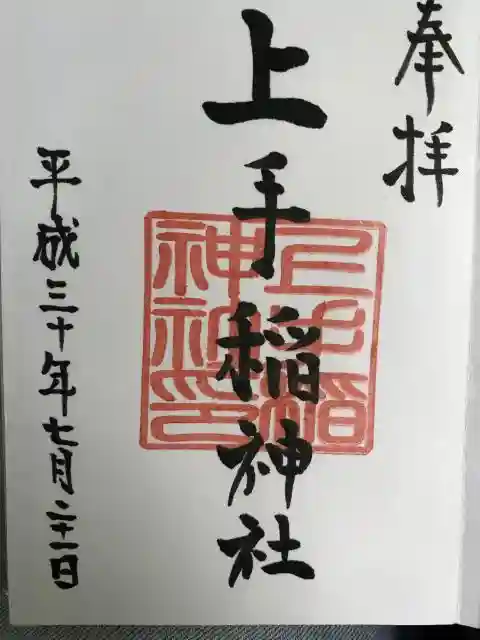 奉拝
上手稲神社
上手稲神社印
平成三十年七月二十一日